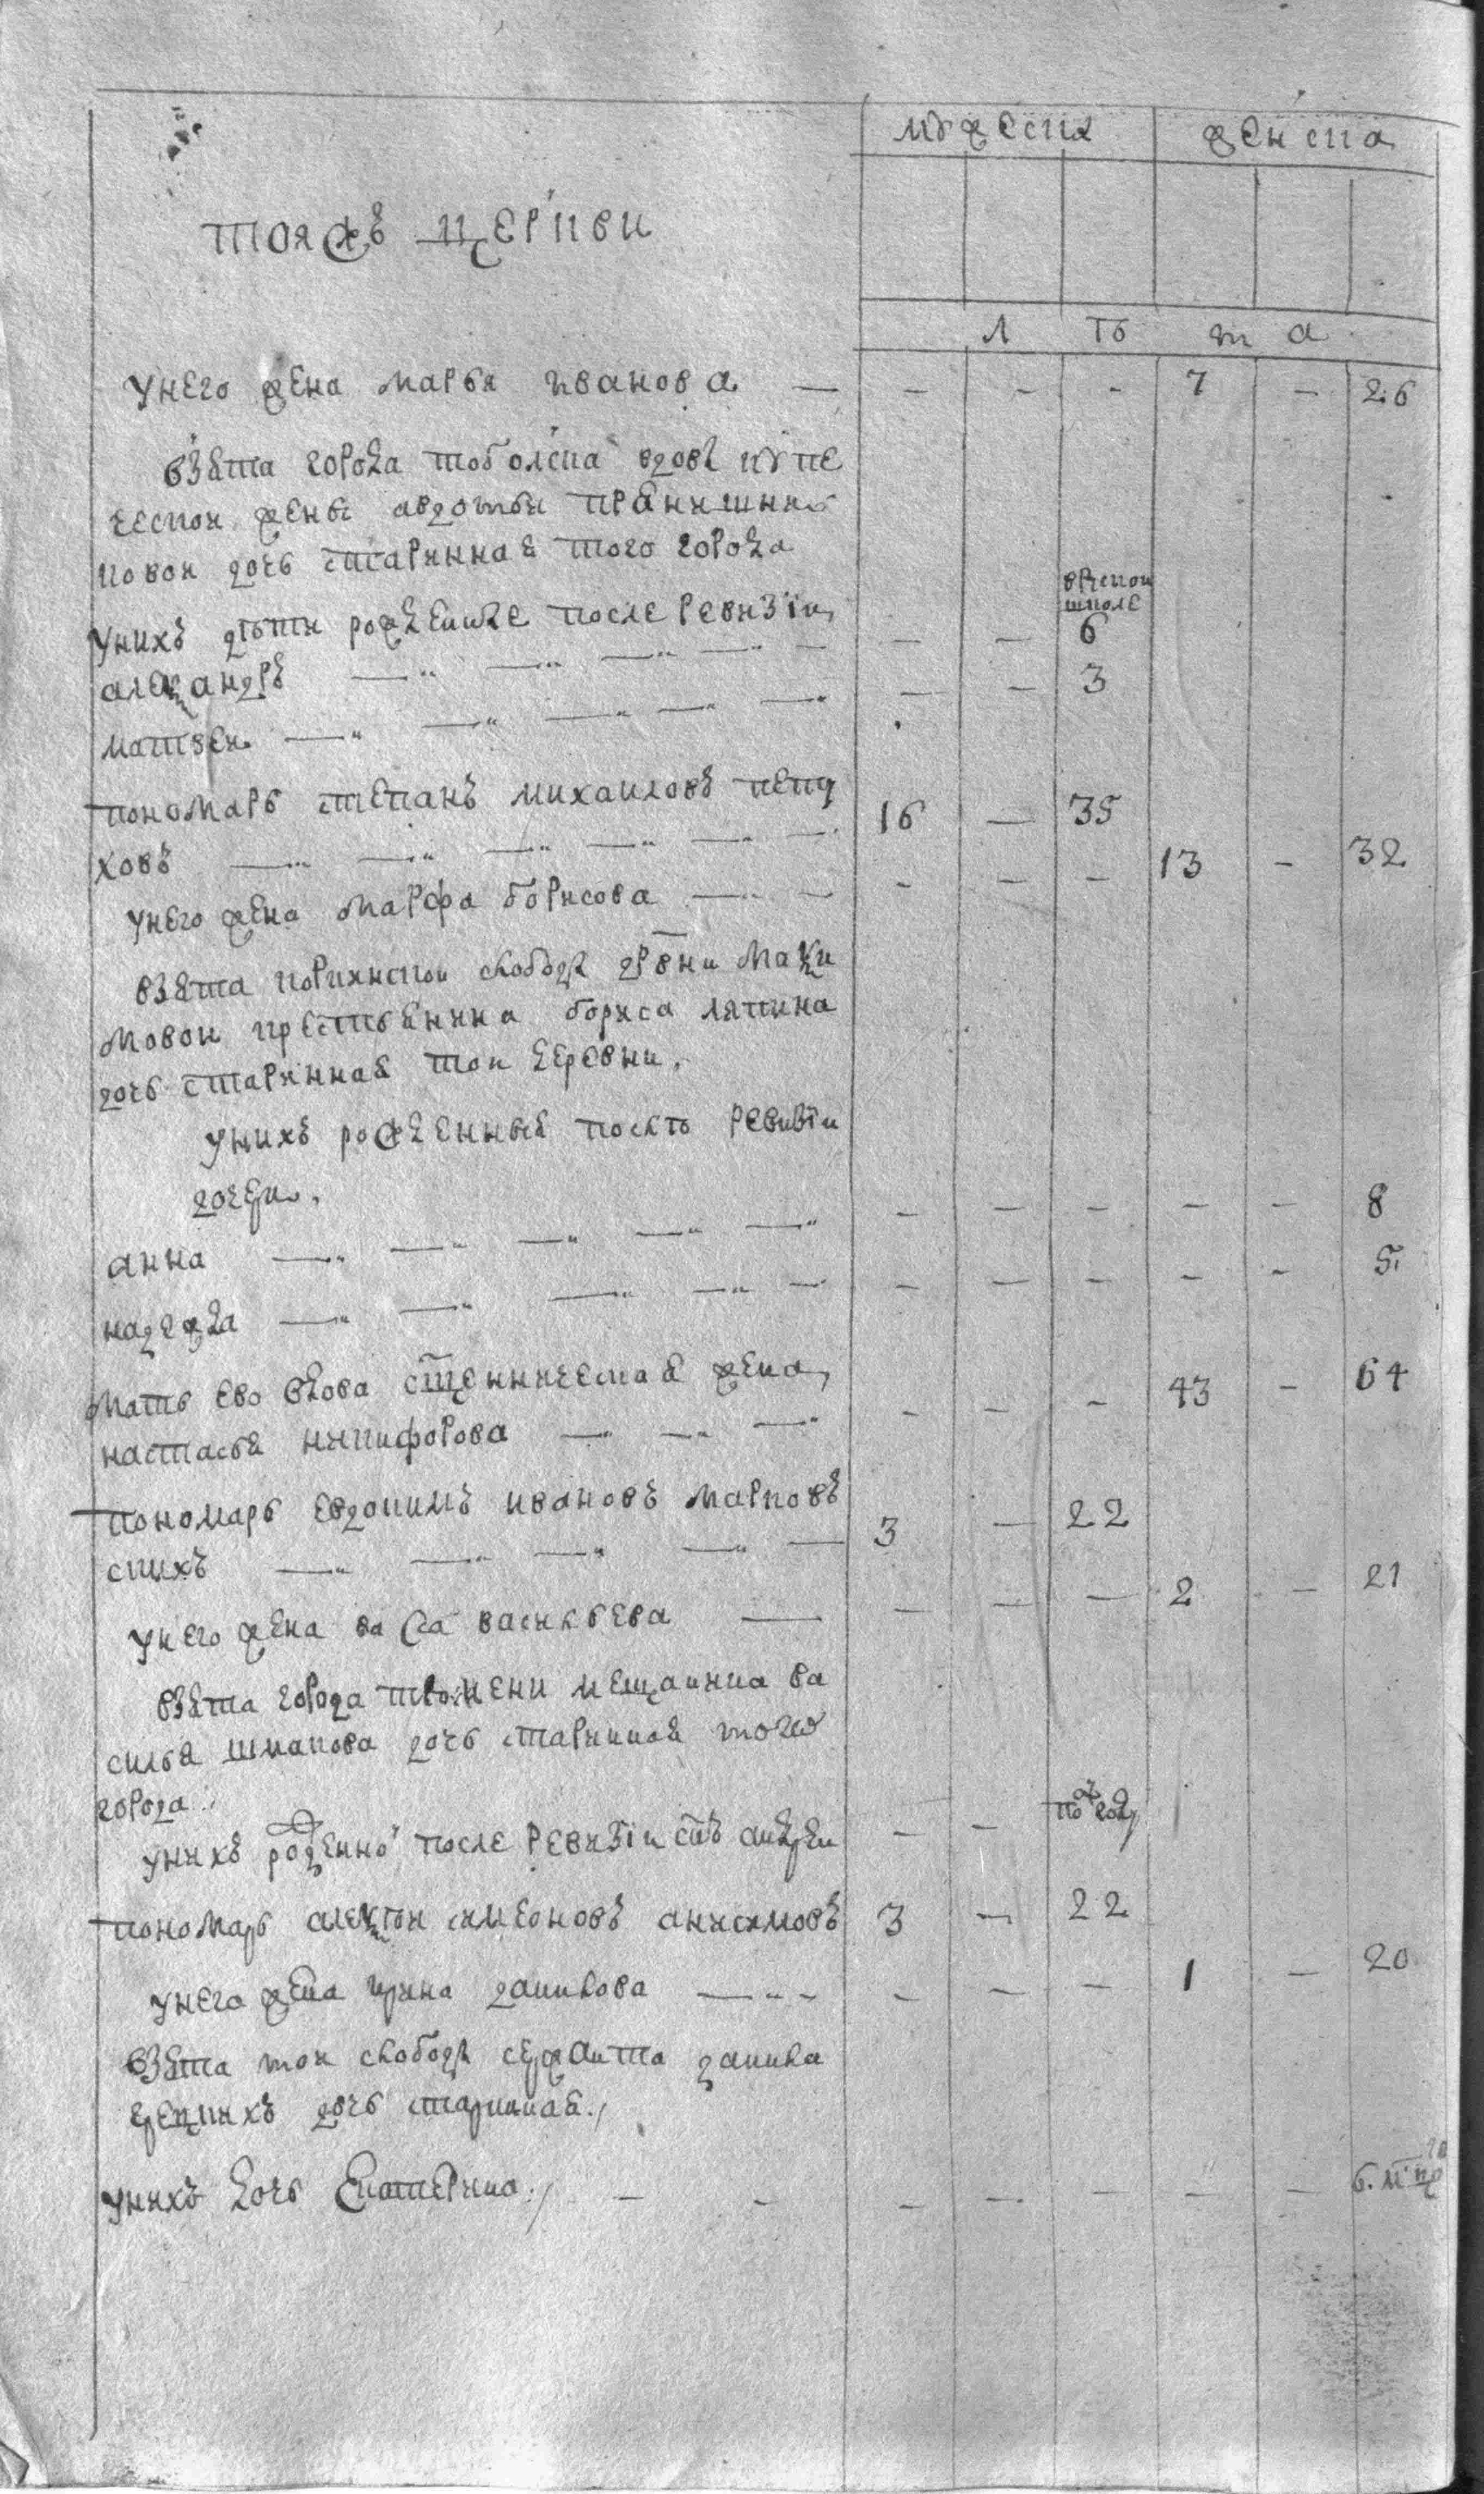 мужеска женска
тояжъ церкви
лѣ та
унего жена марья иванова — — — — 7 — 26
взята города тоболска вдовы купе
ческой жены авдотьи
ковой дочь старинная того города
врускои
школе
унихъ дѣти рожденные после ревизїи
александръ — — 6
матвеи — — 3
пономарь степанъ михаиловъ пету
ховъ 16 — 35
унего жена марфа борисова — — — 13 — 32
взята коркинскои слободы дрвни макси
мовои крестьянина бориса ляпина
дочь старинная тои деревни.
унихъ рожденныя послѣ ревизїи
дочери.
анна — — — — — 8
надежда — — — — — 5
мать ево вдова сщенническая жена
настасья никифорова — — — 43 — 64
пономарь евдокимъ ивановъ марковъ
скихъ 3 — 22
унего жена васса васильева — — — 2 — 21
взята города тюмени мещанина ва
силья шмакова дочь старинная того
города.
унихъ рожденно после ревизїи снъ андреи — — по году
пономарь алексѣи симеоновъ анисимовъ 3 — 22
унего жена ирина данилова — — — 1 — 20
взята тои слободы сержанта данила
дочь старинная.
унихъ дочь екатерина. — — — — — — — 6. мцъ